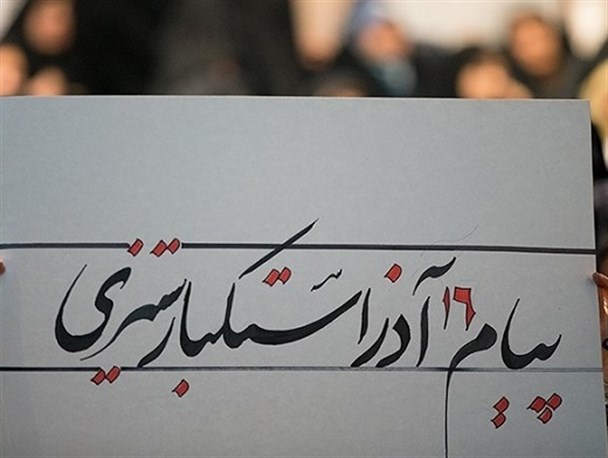 پیام ۱۶ آذر استکبارستیزی